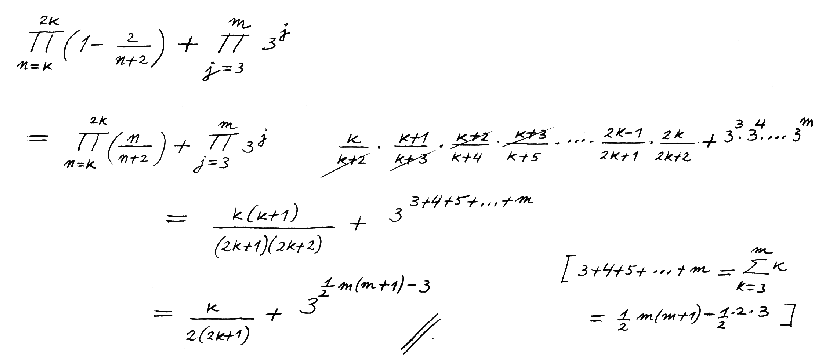 \prod_{n=k}^{2k} (1 - \frac{2}{n+2}) + \prod_{j=3}^{m} 3^j
= \prod_{n=k}^{2k} (\frac{n}{n+2}) + \prod_{j=3}^{m} 3^j    \frac{k}{k+2} \cdot \frac{k+1}{k+3} \cdot \frac{k+2}{k+4} \cdot \frac{k+3}{k+5} \cdot .... \frac{2k-1}{2k+1} \cdot \frac{2k}{2k+2} + 3^3 \cdot 3^4 .... 3^m
= \frac{k(k+1)}{(2k+1)(2k+2)} + 3^{3+4+5+...+m}
[3+4+5+...+m = \sum_{k=3}^{m} k
= \frac{k}{2(2k+1)} + 3^{\frac{1}{2}m(m+1)-3}
= \frac{1}{2} m(m+1) - \frac{1}{2} \cdot 2 \cdot 3 ]